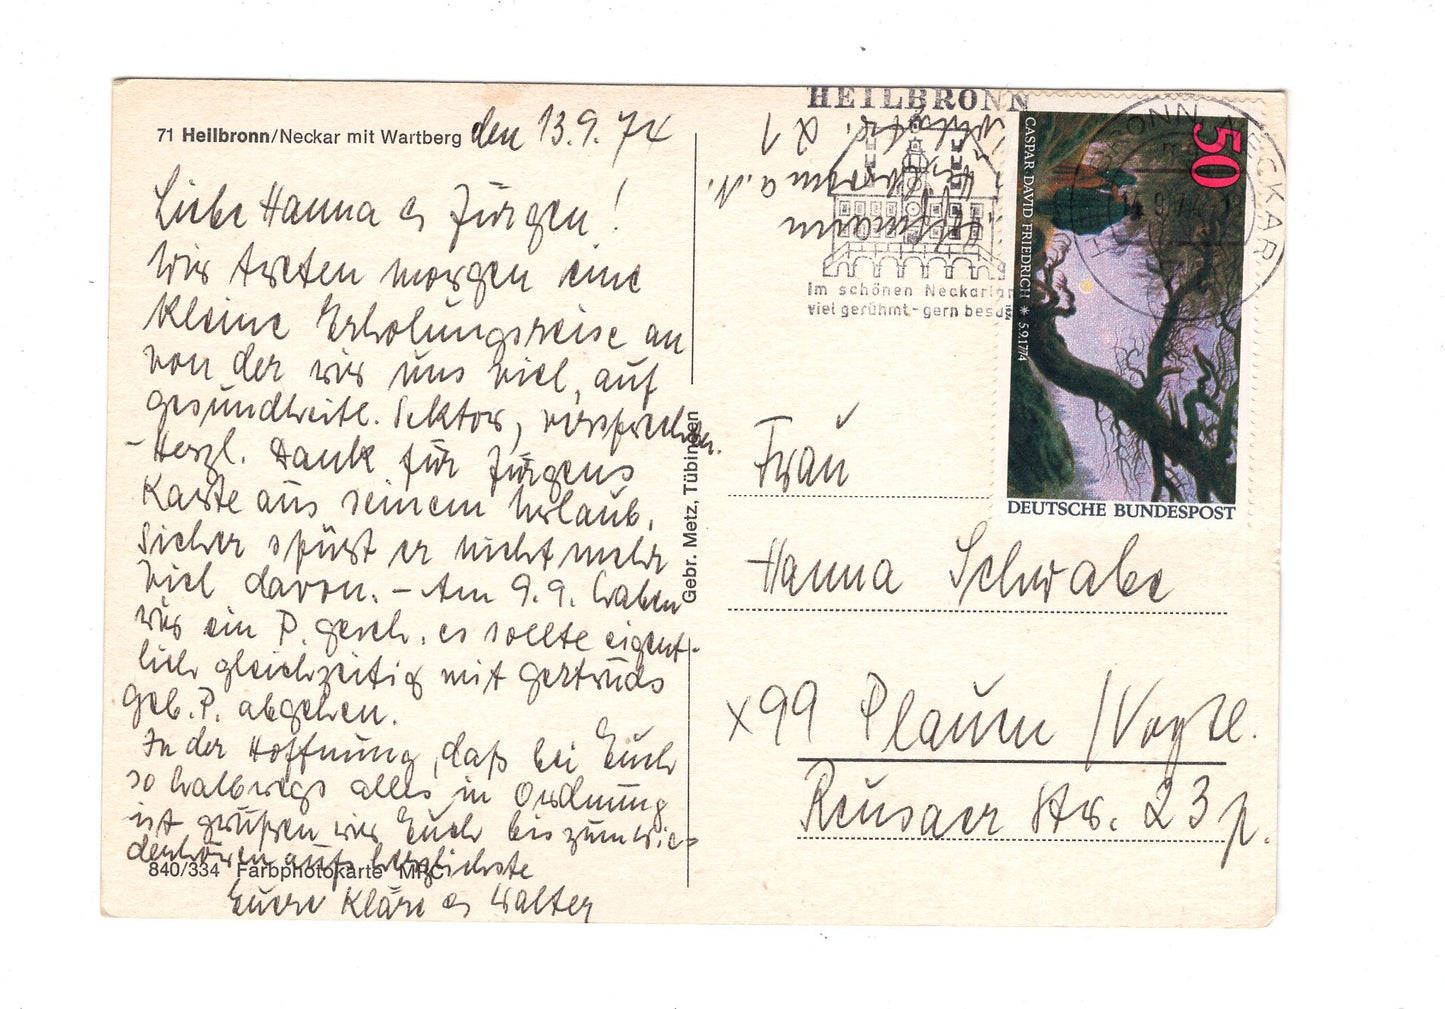 71 Heilbronn/Neckar mit Wartberg
den 13.9.74
Liebe Hanna & Jürgen!
Wir treten morgen eine
kleine Erholungsreise an
von der wir uns viel, auf
gesundheitl. Sektor, versprechen.
- Herzl. Dank für Jürgens
Karte aus seinem Urlaub.
Sicher spürt er nicht mehr
viel davon. - Am 9.9. haben
wir ein P. gesch. es sollte eigent-
lich gleichzeitig mit Gertruds
Geb. P. abgehen.
In der Hoffnung, daß bei Euch
so halbwegs alles in Ordnung
ist grüßen wir Euch bis zum Wie-
derhören aufs herzlichste
Euere Kläre & Walter
840/334 Farbphotokarte MRC
Gebr. Metz, Tübingen
HEILBRONN
Im schönen Neckarlan
viel gerühmt - gern besu
HEILBRONN NECKAR
14.9.74
50
CASPAR DAVID FRIEDRICH * 5.9.1774
DEUTSCHE BUNDESPOST
Frau
Hanna Schwabe
x99 Plauen /Vogtl.
Reusaer Str. 23 p.